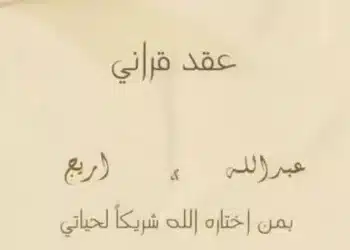 عقد قراني
عبدالله & اريج
بمن إختاره الله شريكاً لحياتي